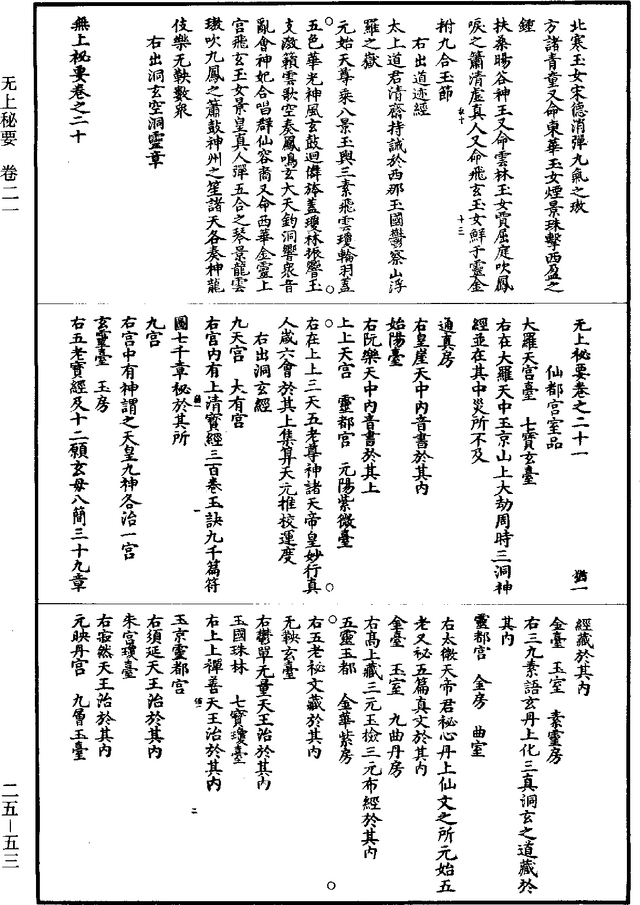 北寒玉女宋德消彈九氣之璈
方諸青童又命東華玉女煙景珠擊西盈之
鍾
扶桑暘谷神王又命雲林玉女賈屈庭吹鳳
唳之簫清虛真人又命飛玄玉女鮮于靈金
拊九合玉節
右出道迹經
太上道君清齋持誡於西那玉國鬱察山浮
羅之嶽
元始天尊乘八景玉輿三素飛雲瓊輪羽蓋
五色華光神風玄鼓迴儛旍蓋瓊林振響玉
支激籟雲歌空奏鳳鳴玄大天鈞洞響衆音
亂會神妃合唱群仙容裔又命西華金靈上
宮飛玄玉女景皇真人彈五合之琴景龍雲
璈吹九鳳之簫鼓神州之笙諸天各奏神龍
伎樂无鞅數衆
右出洞玄空洞靈章
無上秘要卷之二十
无上秘要卷之二十一 猶一
仙都宮室品
大羅天宮臺 七寶玄臺
右在大羅天中玉京山上大劫周時三洞神
經並在其中災所不及
通真房
右皇崖天中內音書於其內
始陽臺
右阮樂天中內音書於其上
上上天宮 靈都宮 元陽紫微臺
右在上上三天五老尊神諸天帝皇妙行真
人歲六會於其上集算天元推校運度
右出洞玄經
九天宮 大有宮
右宮內有上清寶經三百卷玉訣九千篇符
圖七千章秘於其所
九宮
右宮中有神謂之天皇九神各治一宮
玄靈臺 玉房
右五老寶經及十二願玄母八簡三十九章
經藏於其內
金臺 玉室 素靈房
右三九素語玄丹上化三真洞玄之道藏於
其內
靈都宮 金房 曲室
右太微天帝君秘心丹上仙文之所元始五
老又秘五篇真文於其內
金臺 玉室 九曲丹房
右高上藏三元玉檢三元布經於其內
五靈玉都 金華紫房
右五老秘文藏於其內
无鞅玄臺
右鬱單无量天王治於其內
玉國珠林 七寶瓊臺
右上上禪善天王治於其內
玉京靈都宮
右須延天王治於其內
朱宮瓊臺
右寂然天王治於其內
元映丹宮 九層玉臺
无上秘要 卷二一
二五—五三